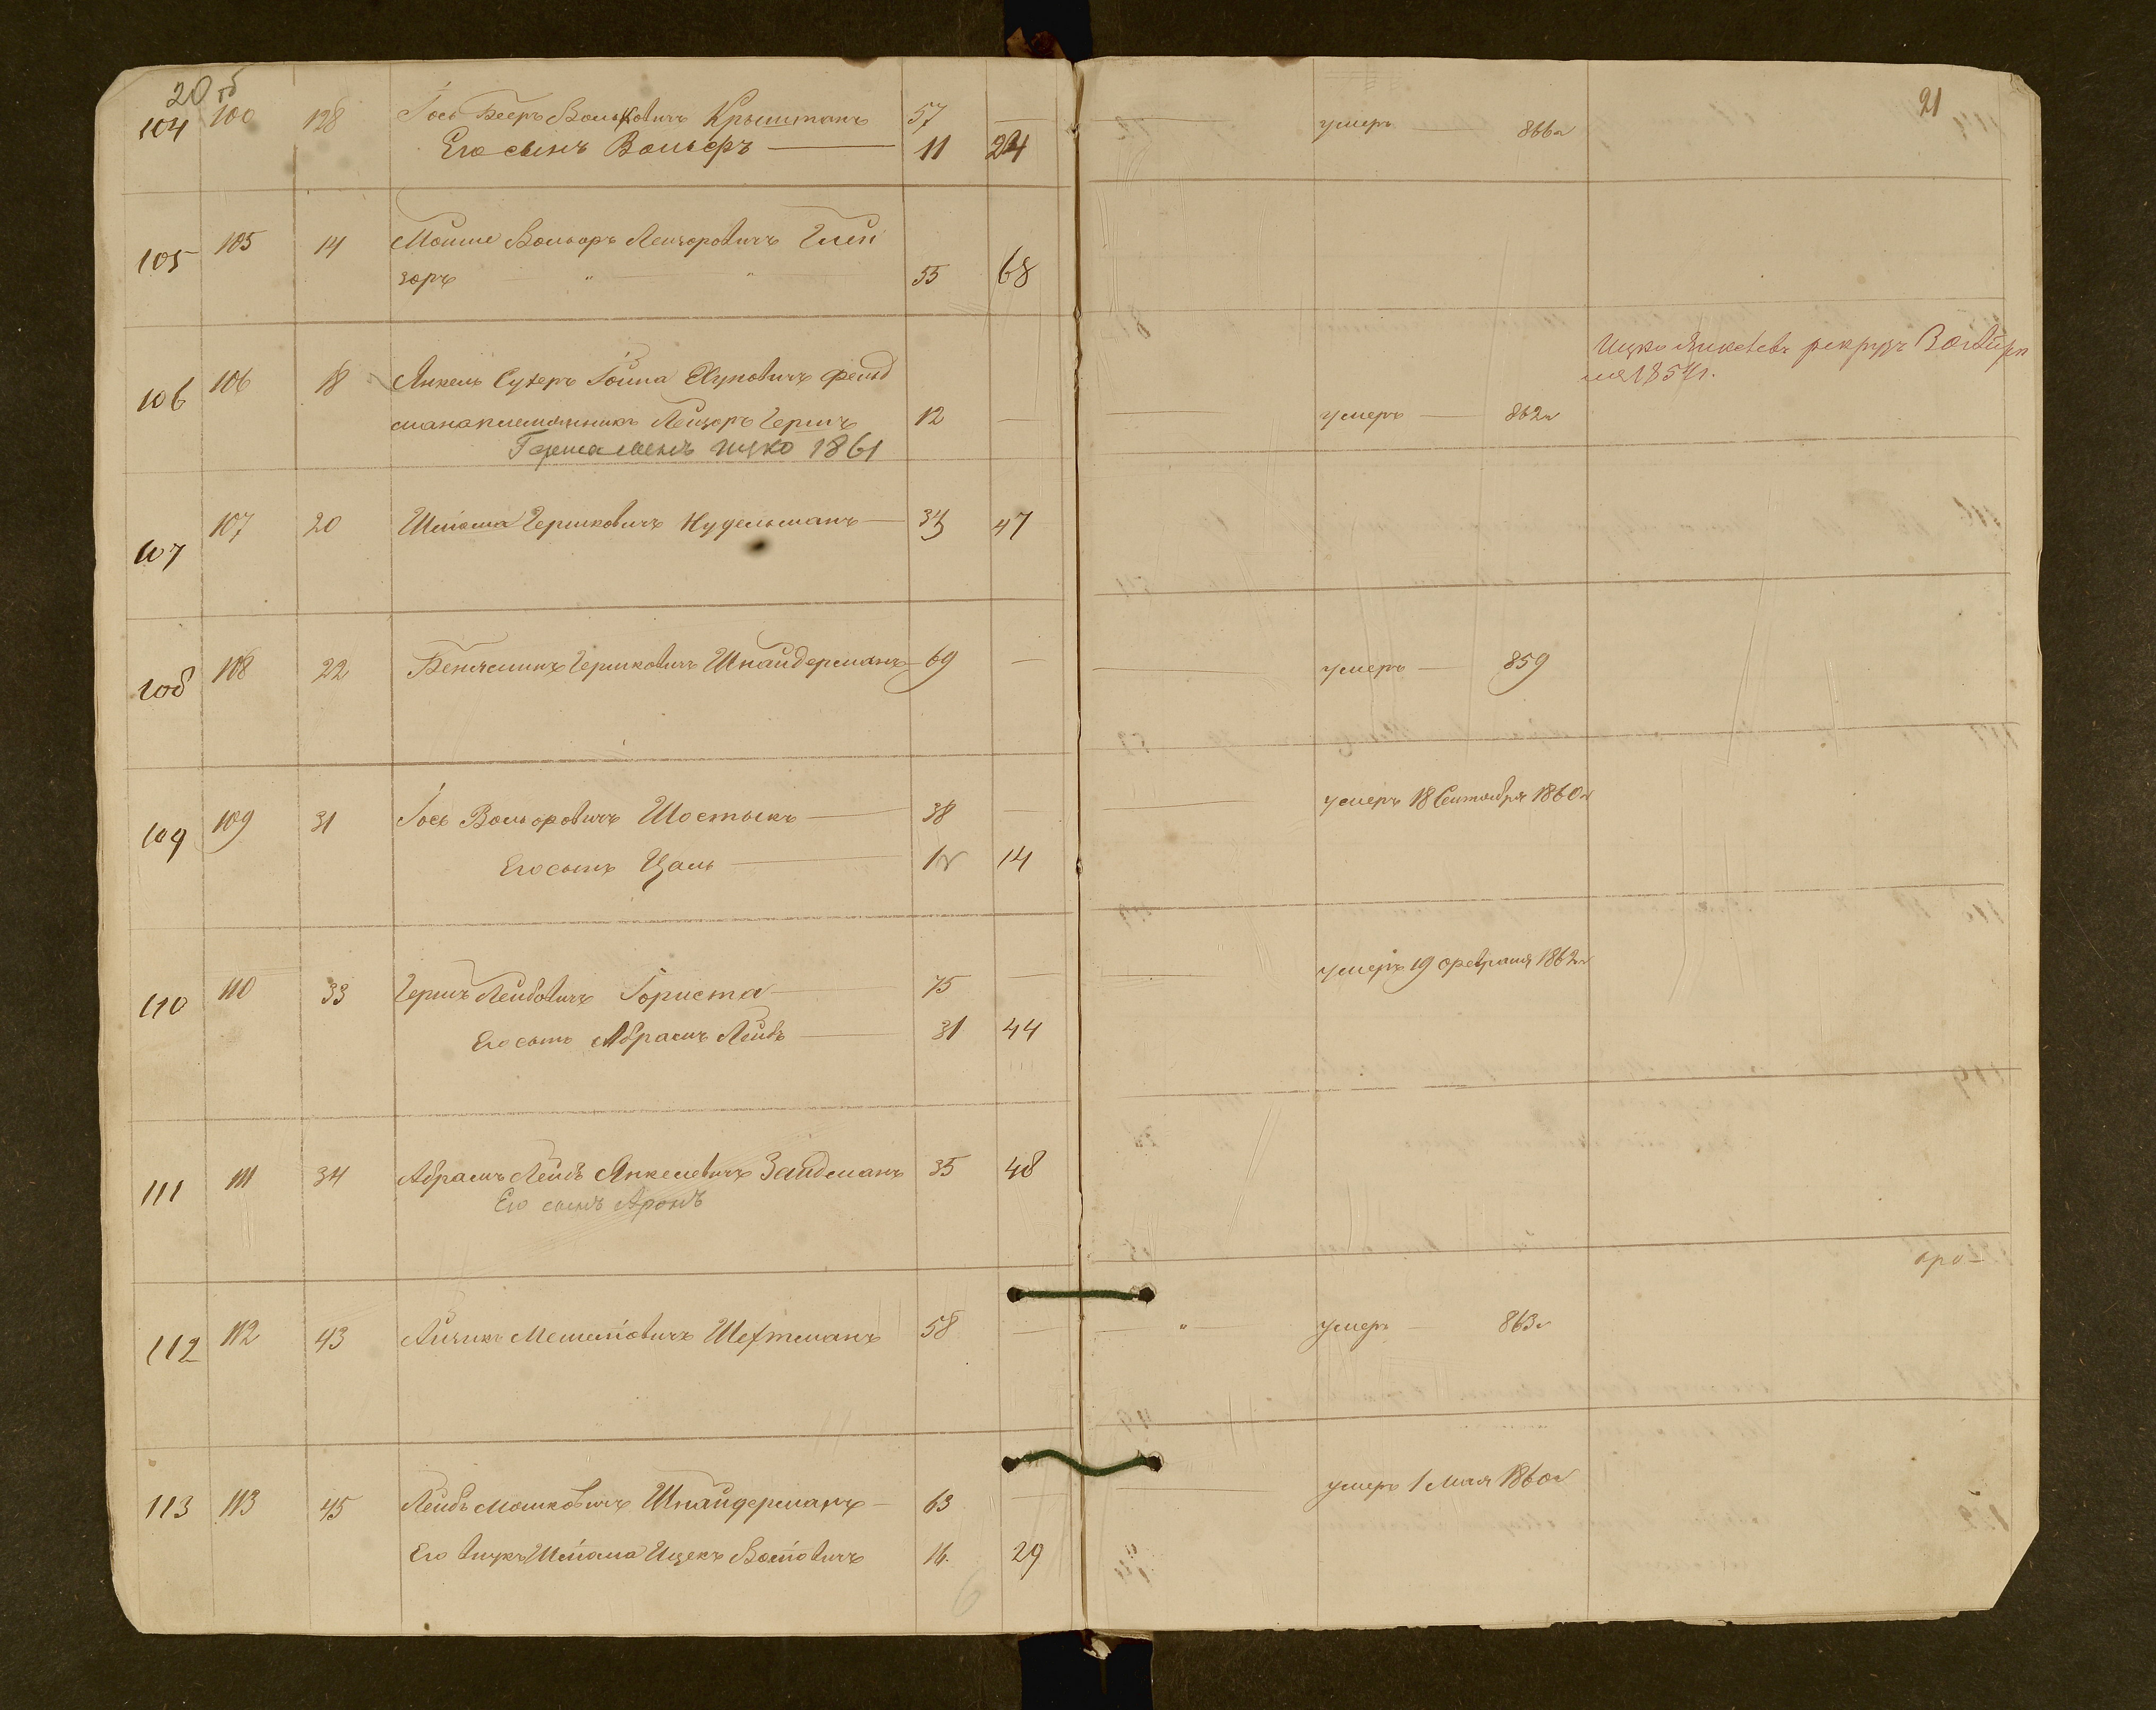 20 об
21
104 100 128 Іось Бееръ Вольковичъ Крыштанъ 57 — — умеръ — 866 г
Его сынъ Вольфъ — 11 24
105 105 14 Мошне Вольфъ Лейзеровичъ Глей
зеръ 〃 〃 55 68
106 106 18 Янкель Сухеръ Іойна Ехуновичъ Фельд
Ицко рекрутъ
1854 г.
мана племянникъ Лейзеръ Гершъ 12 — — умеръ — 862 г
Ицко 1861
107 107 20 Шліома Гершковичъ Нудельманъ — 34 47
108 108 22 Беньяминъ Гершковичъ Шнайдерманъ 69 — — умеръ — 859
109 109 31 Іось Вольфовичъ Шостыкъ — 38 — — умеръ 18 Сентября 1860 г
Его сынъ Цаль — 1 14
110 110 33 Гершъ Лейбовичъ Гориста — 75 — — умеръ 19 Февраля 1862 г
Его сынъ Абрамъ Лейбъ — 31 44
111 111 34 Абрамъ Лейбъ Янкелевичъ Зайдманъ 35 48
Его сынъ Аронъ
112 112 43 Айзикъ Шехтманъ 58 — — 〃 — умеръ — 863 г
113 113 45 Лейбъ Мошковичъ Шнайдерманъ — 63 — — умеръ 1 Мая 1860 г
Его внукъ Шліома Ицекъ 16. 29
6